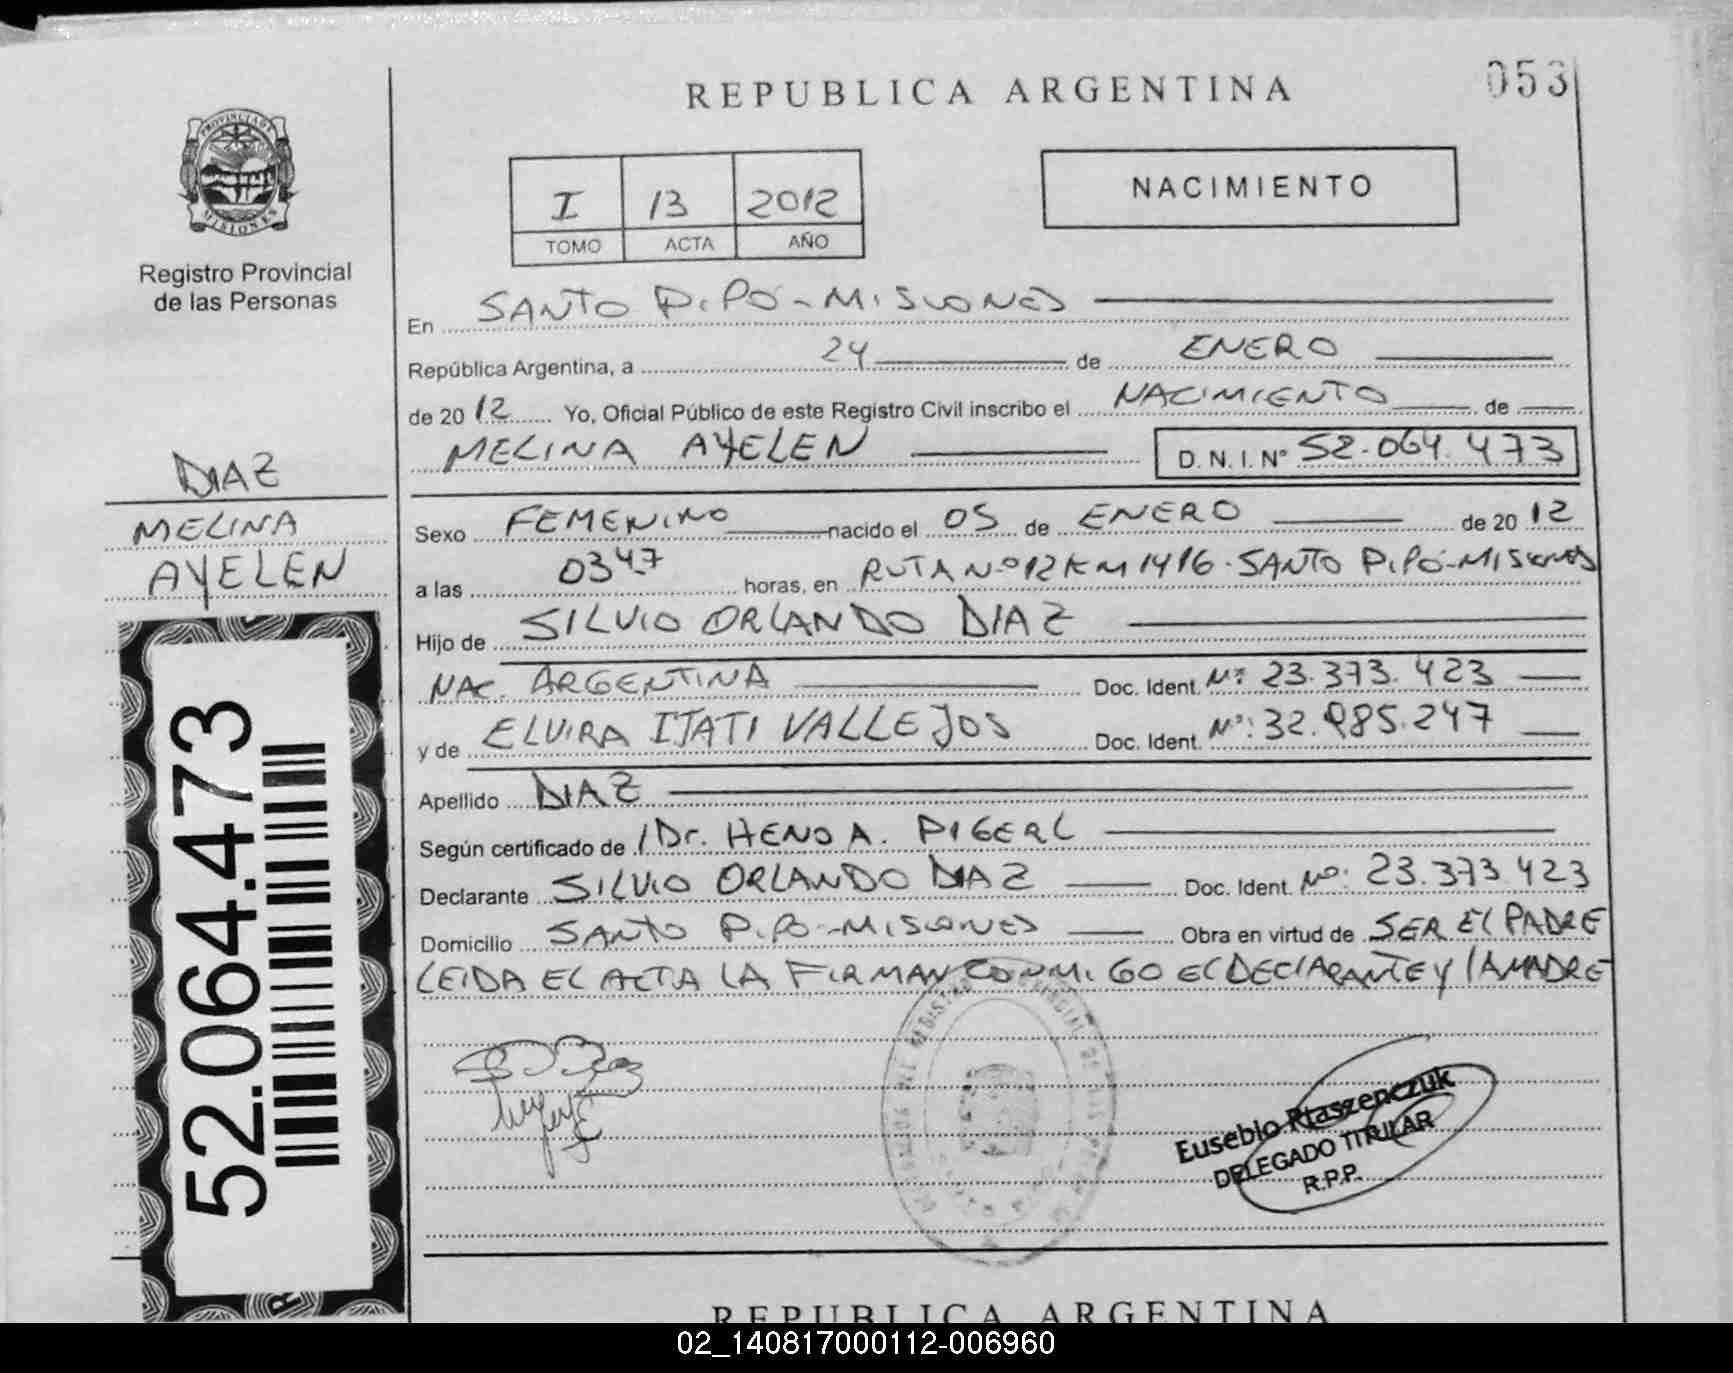 REPUBLICA ARGENTINA
053
PROVINCIA DE
MISIONES
Registro Provincial
de las Personas
I 13 2012
TOMO ACTA AÑO
NACIMIENTO
En SANTO PIPÓ-MISIONES
República Argentina, a 24 de ENERO
de 2012 Yo, Oficial Público de este Registro Civil inscribo el NACIMIENTO de
MELINA AYELEN D.N.I. Nº 52.064.473
DIAZ
MELINA
AYELEN
52.064.473
Sexo FEMENINO nacido el 05 de ENERO de 2012
a las 0347 horas, en RUTA Nº 12 KM 1416-SANTO PIPÓ-MISIONES
Hijo de SILVIO ORLANDO DIAZ
NAC. ARGENTINA Doc. Ident. Nº: 23.373.423
y de ELVIRA ITATI VALLEJOS Doc. Ident. Nº: 32.985.247
Apellido DIAZ
Según certificado de Dr. HENO A. PIGERL
Declarante SILVIO ORLANDO DIAZ Doc. Ident. Nº: 23.373.423
Domicilio SANTO PIPÓ-MISIONES Obra en virtud de SER EL PADRE
LEIDA EL ACTA LA FIRMAN CONMIGO EL DECLARANTE Y LA MADRE
Eusebio Ptaszenczuk
DELEGADO TITULAR
R.P.P.
REPUBLICA ARGENTINA
02_140817000112-006960